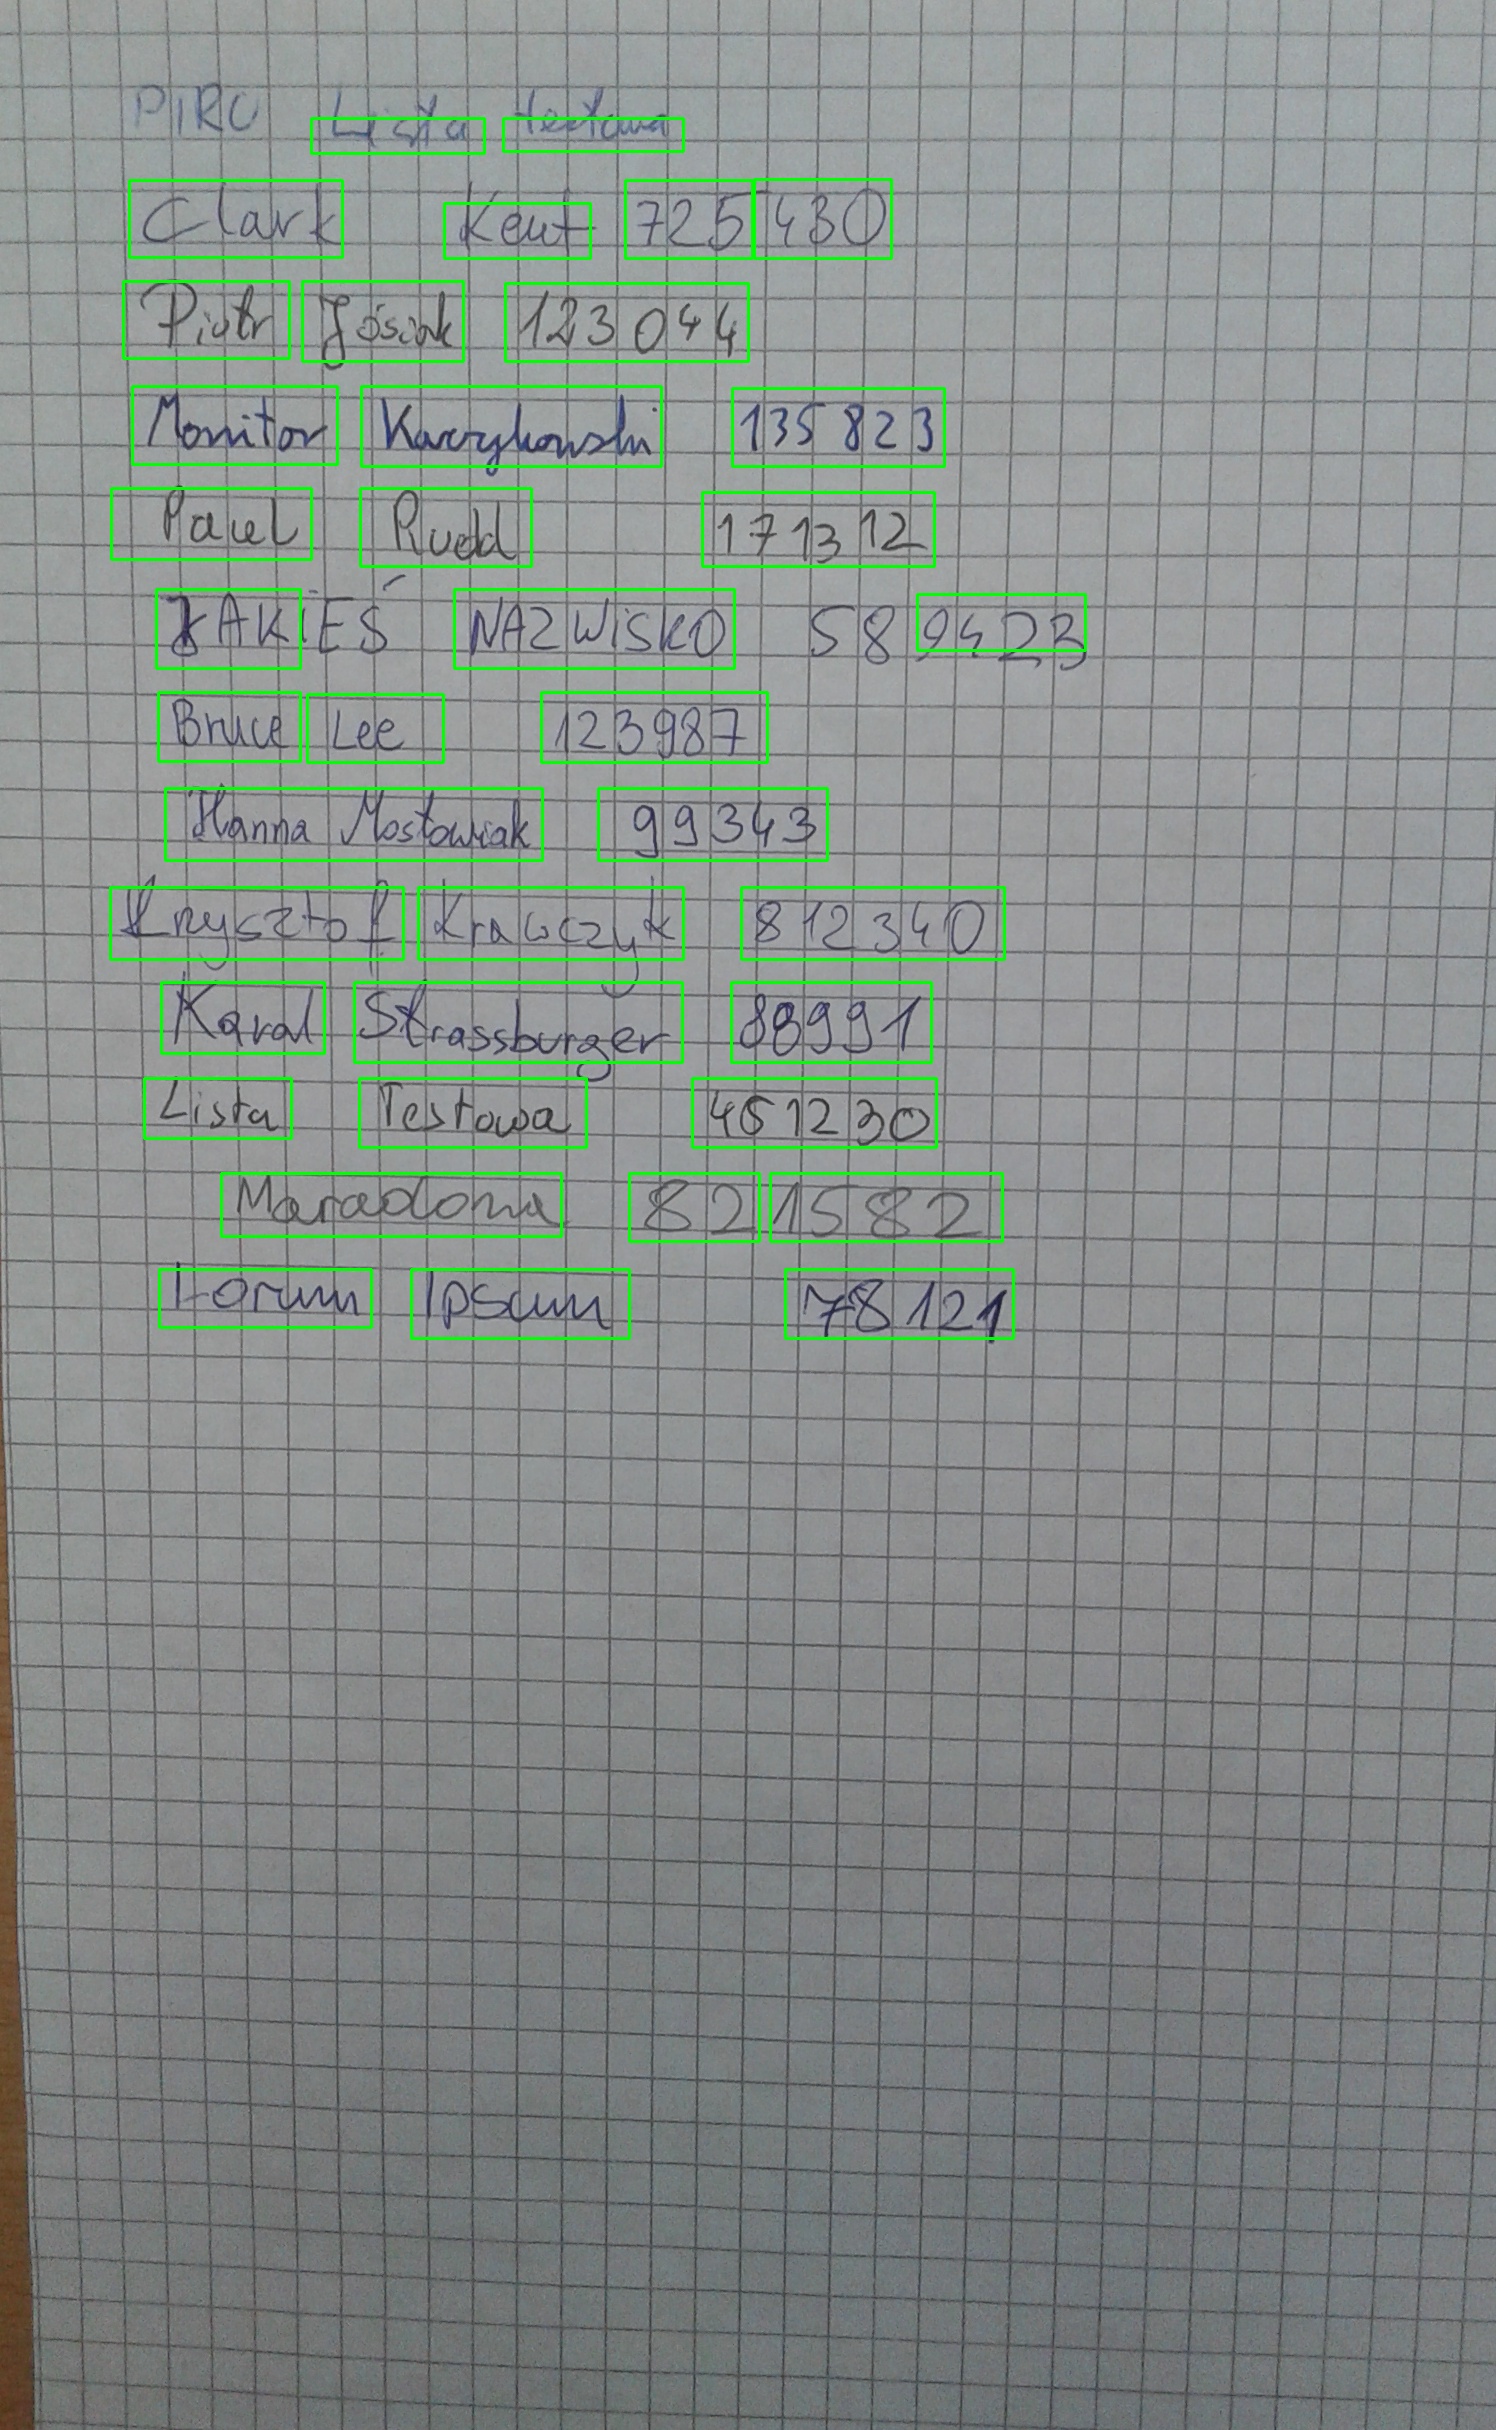 PIRO Lista testowa
Clark Kent 725 430
Piotr Jósiak 123 044
Monitor Kaczykowski 135 823
Paweł Rudd 171312
JAKIEŚ NAZWISKO 589423
Bruce Lee 123987
Hanna Mostowiak 99343
Krzysztof Krawczyk 812340
Karol Strassburger 89991
Lista Testowa 451230
Maradona 821582
Lorum Ipsum 78121